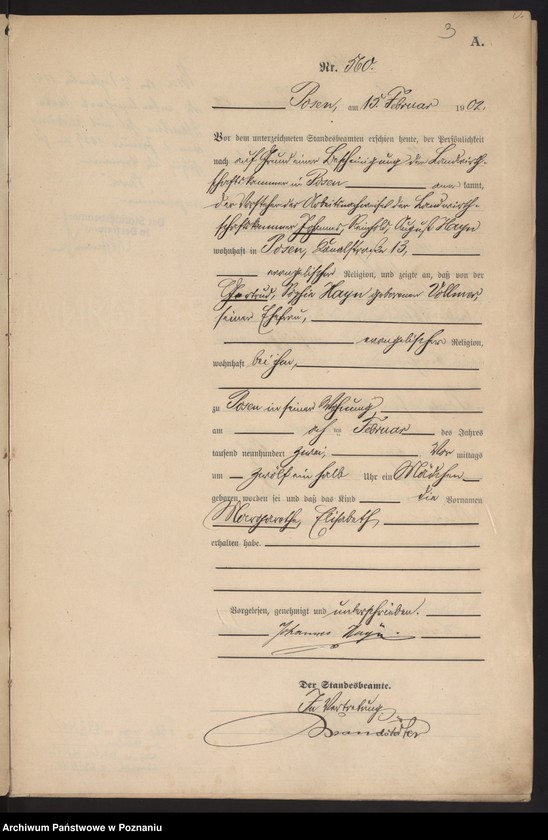 3
A.
Nr. 560.
Posen, am 15. Februar 1902.
Vor dem unterzeichneten Standesbeamten erschien heute, der Persönlichkeit
nach auf Grund einer Bescheinigung der Landwirth-
schaftskammer in Posen kannt,
der Vorsteher der Arbeitsnachweises der Landwirth-
schaftskammer Johannes, Reinhold, August Hayn
wohnhaft in Posen, Kanalstraße 13,
evangelischer Religion, und zeigte an, daß von der
Gertrud, Sophie Hayn geborenen Vollmer,
seiner Ehefrau,
evangelischer Religion,
wohnhaft bei ihm,
zu Posen in seiner Wohnung
am ten Februar des Jahres
tausend neunhundert zwei, Vor mittags
um zwölf ein halb Uhr ein Mädchen
geboren worden sei und daß das Kind die Vornamen
Margarethe, Elisabeth
erhalten habe.
Vorgelesen, genehmigt und unterschrieben.
Johannes Hayn.
Der Standesbeamte.
In Vertretung
Archiwum Państwowe w Poznaniu